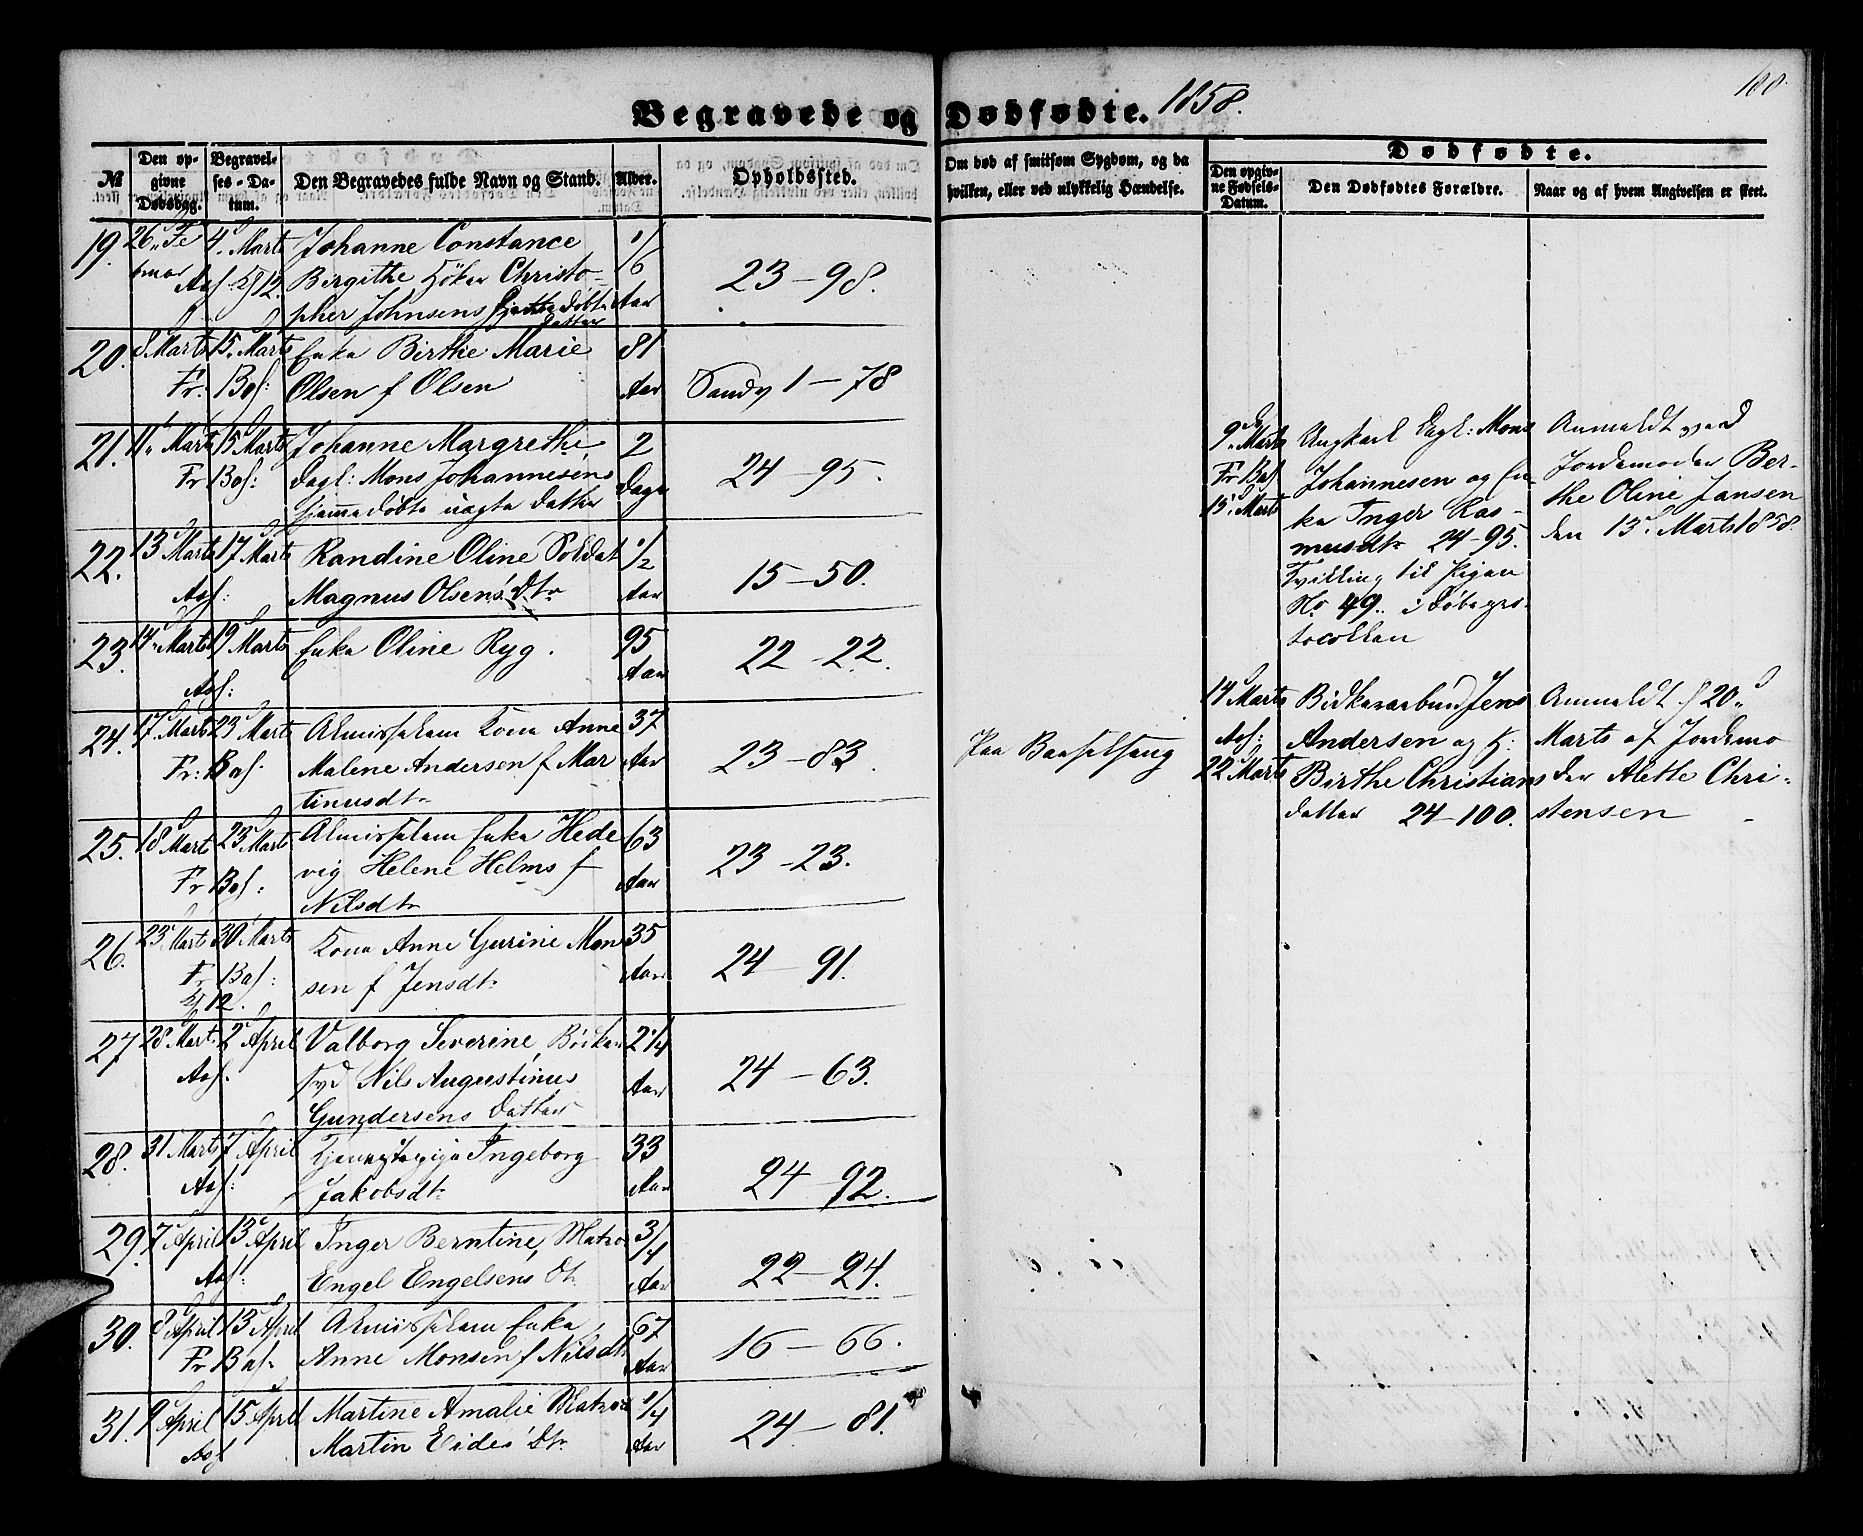 Begravede og Dødfødte. 1858.
188.
№
Den op-
givne
Dødsdag.
Begravel-
ses-Da-
tum.
Den Begravedes fulde Navn og Stand.
Alder.
Opholdssted.
Om død af smitsom Sygdom, og da
hvilken, eller ved ulykkelig Hændelse.
Dødfødte.
Den opgiv-
ne Fødsels-
Datum.
Den Dødfødtes Forældre.
Naar og af hvem Angivelsen er skeet.
19. 26. Fe 4. Marts Johanne Constance 1/6
bruar Birgithe Høker Christo-
pher Johnsens hjemmedøbte Aar 23–98.
Datter
20. 8 Marts 15. Marts Enke Birthe Marie 81
Fr: Bos: Olsen f Olsen Aar Sandv 1–78
21. 11. Marts 15 Marts Johanne Margrethe 2
Fr Bos: Dagl: Mons Johannesens Dage 24–95.
hjemmedøbte uægte Datter
22. 13 Marts 17 Marts Randine Oline Soldat 1/2
Aas: Magnus Olsens Dtr Aar 15–50.
23. 14. Marts 19 Marts Enke Oline Ryg. 95
Aas: Aar 22–22.
24. 17. Marts 23 Marts Almisselem Kone Anne 37
Fr: Bos: Malene Andersen f Mar Aar 23–83.
tinusdtr
Paa Barselseng
25. 18 Marts 23 Marts Almisselem Enke Hede 63
Fr Bos: vig Helene Helms f Aar 23–23.
Nilsdtr
26. 23 Marts 30 Marts Kone Anne Gurine Mon 35
Fr Bos: sen f Jensdtr Aar 24–91.
12.
27 28 Marts 2 April Valborg Severine, Bødker 2 1/4
Aas. svd Nils Augustinus Aar 24–63.
Gundersens Datter
28. 31 Marts 7 April Tjenestepige Ingeborg 33
Aas: Jakobsdtr Aar 24–92.
29. 7 April 13 April Inger Berntine, Matros 3/4
Aas: Engel Engelsens Dt. Aar 22–24.
30. 8 April 13 April Almisselem Enke 67
Fr Bos: Anne Monsen f Nilsdtr Aar 16–66.
31. 9 April 15 April Martine Amalie Matros 1/4
Aas Martin Eides' Dtr Aar 24–81.
9. Marts
Fr Bos
15 Marts
Ungkarl Dagl: Mons
Johannesen og En-
ke Inger Ras-
musdtr 24–95.
Tvilling til Pigen
No 49. i Døbepro-
tocollen
Anmeldt ved
Jordemoder Ber-
the Oline Jansen
den 13. Marts 1858
14 Marts
Aas:
22 Marts
Jens
Andersen og H:
Birthe Christians
datter 24–100.
Anmeldt d 20.
Marts af Jordemo
der Alette Chri-
stensen